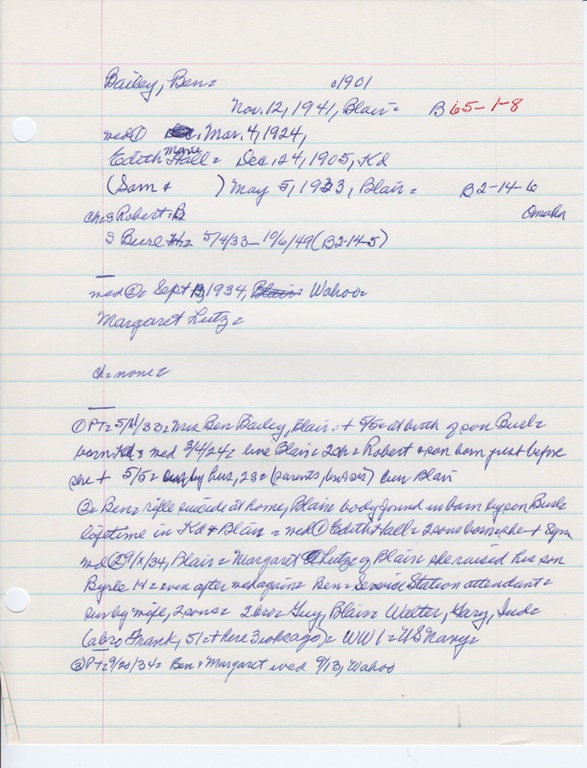 Bailey, Ben= c1901
Nov. 12, 1941, Blair= B 65-1-8
med① Mar. 4, 1924,
Edith Marie Hall= Dec. 24, 1905, Kd
(Sam + ) May 5, 1933, Blair= B2-14-6
ch= S Robert= B Omaha
S Burl H= 5/4/33- 10/6/49 (B2-14-5)
med②= Sept 13, 1934, Blair Wahoo=
Margaret Lutz=
ch= none=
①PT= 5/11/33= Mrs Ben Bailey, Blair= + 5/5= at birth of son Burl=
born Kd= med 3/4/24= live Blair= 2ch= Robert + son born just before
she + 5/5= by hus, 2s= (parents, ) bur Blair
②= Ben= rifle suicide at home, Blair= body found in barn by son Burl=
lifetime in Kd + Blair = med① Edith Hall= 2 sons born= she + 8yrs
med② 9/x/34, Blair= Margaret Lutz= of Blair= she raised his son
Byrle H= even after med again= Ben= Service Station attendant=
sur by wife, 2 sons= 2 bro= Guy, Blair= Walter, Gary, Ind=
(a bro Frank, 51 + here 3 wks ago)= WW1= US Navy=
②PT= 9/20/34= Ben + Margaret wed 9/13, Wahoo